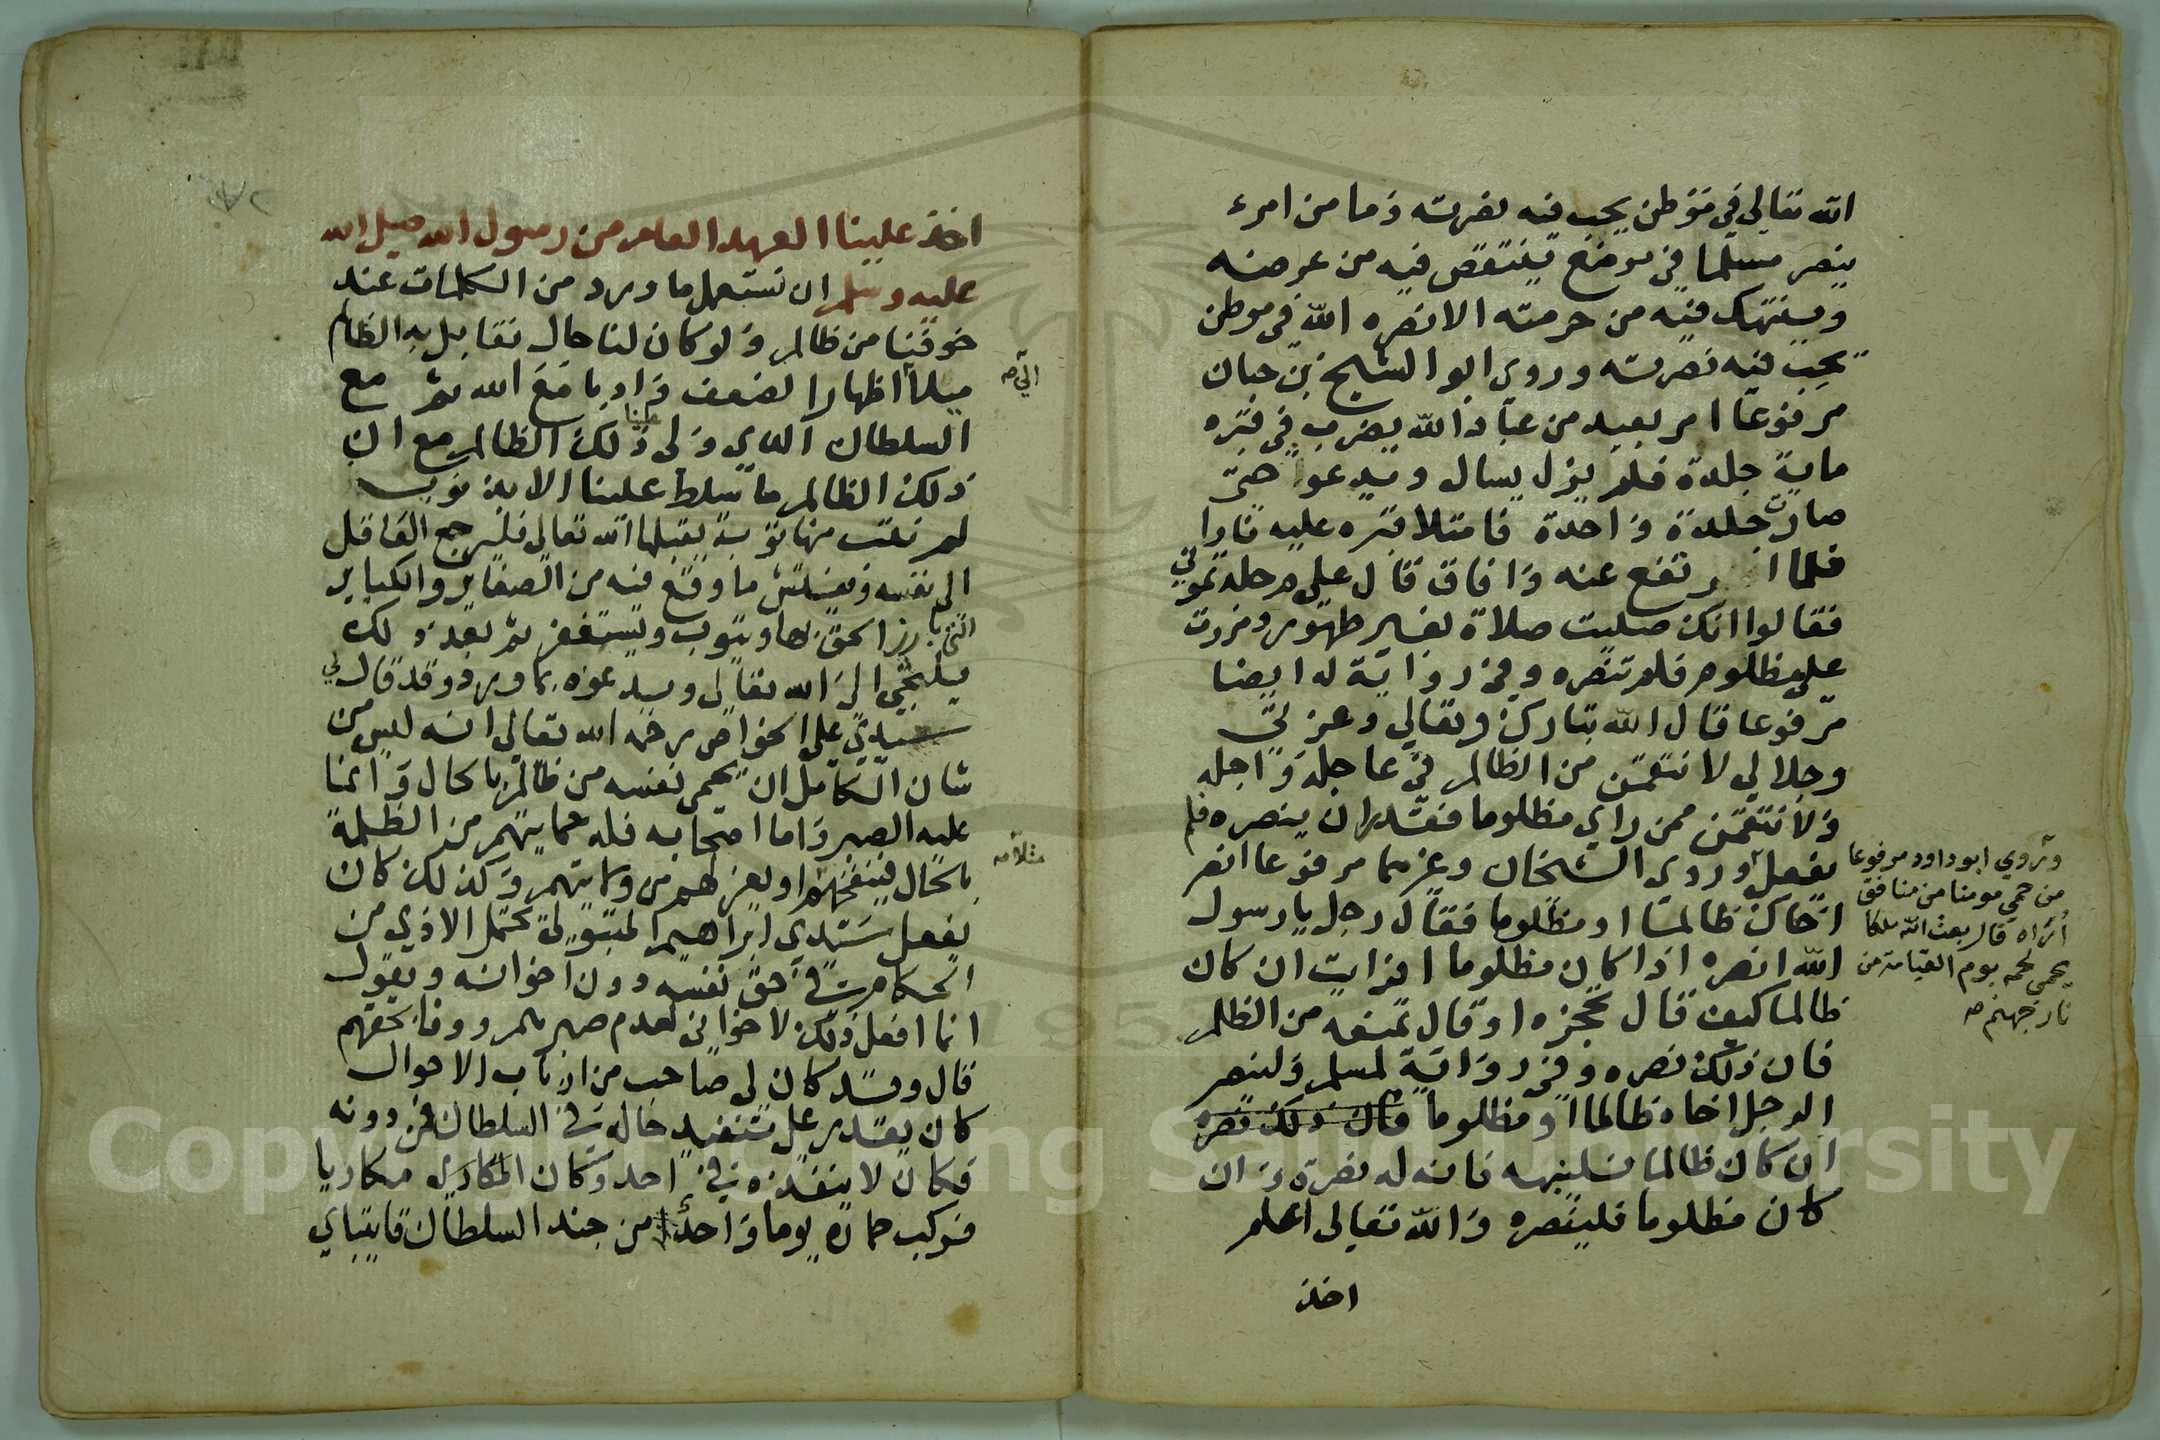 الله تعالي في موطن يحب فيه نصرته وما من امرء
ينصر مسلما في موضع ينتقص فيه من عرضه
وينتهك فيه من حرمته الا نصره الله في موطن
يحب فيه نصرته وروي ابو الشيخ بن حبان
مرفوعا امر بعبد من عباد الله يضرب في قبره
ماية جلدة فلم يزل يسال ويدعوا حتي
صارت جلدة واحدة فامتلا قبره عليه نارا
فلما ارتفع عنه وافاق قال علي م جلدتموني
فقالوا انك صليت صلاة بغير طهور ومررت
علي مظلوم فلم تنصره وفي رواية له ايضا
مرفوعا قال الله تبارك وتعالي وعزتي
وجلالي لا نتقمن من الظالم في عاجله واجله
ولا نتقمن ممن راي مظلوما فقدر ان ينصره فلم
يفعل وروي الشيخان وغيرهما مرفوعا انصر
اخاك ظالما او مظلوما فقال رجل يا رسول
الله انصره اذا كان مظلوما افرايت ان كان
ظالما كيف قال تحجزه او قال تمنعه من الظلم
فان ذلك نصره وفي رواية لمسلم ولينصر
الرجل اخاه ظالما او مظلوما فان ذلك نصره
ان كان ظالما فلينهه فانه له نصرة وان
كان مظلوما فلينصره والله تعالى اعلم
اخذ
وروي ابو داود مرفوعا
من حمي مومنا من منافق
أراه قال بعث الله ملكا
يحمي لحمه يوم القيامة من
نار جهنم صح
اخذ علينا العهد العام من رسول الله صلى الله
عليه وسلم ان نستعمل ما ورد من الكلمات عند
خوفنا من ظالم ولو كان لنا حال نقابل به الظالم
ميلا اظهارا لضعف وادبا مع الله ثم مع
السلطان الذي ولى علينا ذلك الظالم مع ان
ذلك الظالم ما تسلط علينا الا بذنوب
لم نتب منها توبة يقبلها الله تعالى فليرجع العاقل
الى نفسه ويفتش ما وقع فيه من الصغاير والكباير
التي بارز الحق بها ويتوب ويستغفر ثم بعد ذلك
يلتجي الى الله تعالى ويدعوه بما ورد وقد قال لي
سيدي علي الخواص رحمه الله تعالى انه ليس من
شان الكامل ان يحمي نفسه من ظالم بالحال وانما
عليه الصبر واما اصحابه فله حمايتهم من الظلمة
بالحال فينفخهم او يعزلهم من ولايتهم وكذلك كان
يفعل سيدي ابراهيم المتبولي يحتمل الاذي من
الحكام في حق نفسه دون اخوانه ويقول
انما افعل ذلك لاخواني لعدم صبرهم ووفا بحقهم
قال وقد كان لي صاحب من ارباب الاحوال
كان يقدر على تنفيذ حاله في السلطان فمن دونه
فكان لا ينفذه في احد وكان المكاري مكاريا
فركب حماره يوما واحد من جند السلطان قايتباي
الي صح
مثلا صح